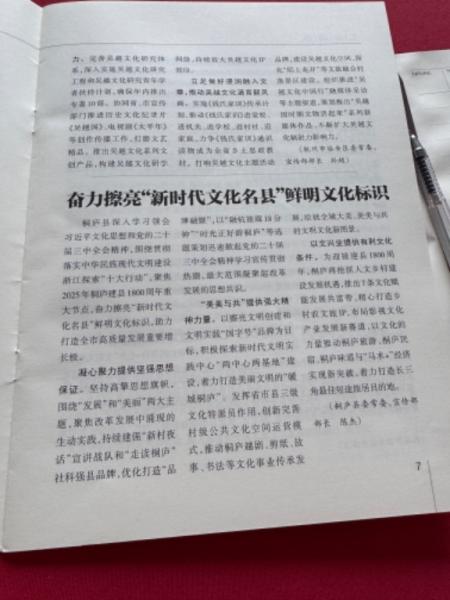 力、完善吴越文化研究体
系,深入实施吴越文化研究
工程和吴越文化研究青年学
者扶持计划,确保年内推出
专著10部。协同省、市宣传
部门推进历史文化纪录片
《吴越国》、电视剧《太平年》
等创作传播工作,打磨文艺
精品。推出吴越文化系列文
创产品,构建吴越文化研学
网络,持续放大吴越文化IP
效应。
立足做好浸润融入文
章,推动吴越文化语言破风
实施《钱氏家训》传承计
划,推动《钱氏家训》进家庭、
进机关、进学校、进村社、进
家庭,力争《钱氏家训》通识
读物成为全省乡土思政教
材。打响吴越文化主题活动
品牌,建设吴越文化空间,深
化“陌上花开”等文旅融合村
落景区建设。组织推进“吴
越文化中国行”融媒体采访
等主题报道,策划推出“吴越
国时期文物活起来”系列新
媒体作品,不断扩大吴越文
化辐射影响力。
(杭州市临安区委常委、
宣传部部长
奋力擦亮“新时代文化名县”鲜明文化标识
桐庐县深入学习领会
习近平文化思想和党的二十
届三中全会精神,围绕贯彻
落实中华民族现代文明建设
浙江探索“十大行动”,聚焦
2025年桐庐建县1800周年重
大节点,奋力擦亮“新时代文
化名县”鲜明文化标识,助力
打造全市高质量发展重要增
长极。
凝心聚力提供坚强思想
保证。坚持高擎思想旗帜,
围绕“发展”和“美丽”两大主
题,聚焦改革发展中涌现的
生动实践,持续建强“新村夜
话”宣讲战队和“走读桐庐”
社科强县品牌,优化打造“品
牌融媒”,以“融杭接廊18分
钟”“时光正好游桐庐”等选
题策划迅速掀起党的二十届
三中全会精神学习宣传贯彻
热潮,最大范围凝聚起改革
发展的思想共识。
“美美与共”提供强大精
神力量。以擦亮文明创建和
文明实践“国字号”品牌为目
标,积极探索新时代文明实
践中心“两中心两基地”建
设,着力打造美丽文明的“暖
城桐庐”。发挥省市县三级
文化特派员作用,创新完善
村级公共文化空间运营模
式,推动桐庐越剧、剪纸、故
事、书法等文化事业传承发
展,绘就全域大美、美美与共
的文明文化新图景。
以文兴业提供有利文化
条件。为迎接建县1800周
年,桐庐将抢抓人文乡村建
设发展机遇,推出7条文化赋
能发展共富带,精心打造乡
村农文旅IP,布局影视文化
产业发展新赛道,以文化的
力量推动桐庐旅游、桐庐民
宿、桐庐味道与“马术+”经济
实现新突破,着力打造长三
角最佳短途旅居目的地。
(桐庐县委常委、宣传部
部长 陈杰)
7